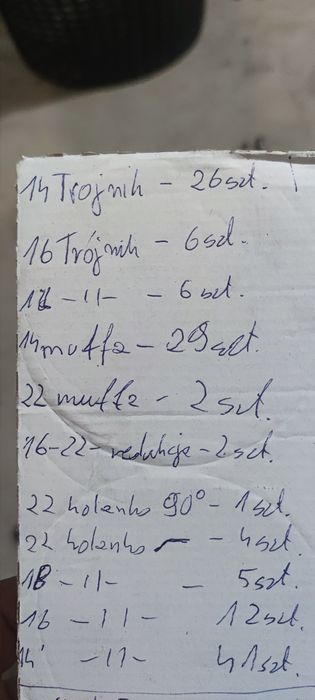 14 Trojnik - 26 szt.
16 Trójnik - 6 szt.
18 -11- - 6 szt.
14 muffa - 29 szt.
22 muffa - 2 szt.
16-22- redukcje - 2 szt.
22 kolanko 90° - 1 szt.
22 kolanko - 4 szt.
18 -11- - 5 szt.
16 -11- 12 szt.
14 -11- 41 szt.